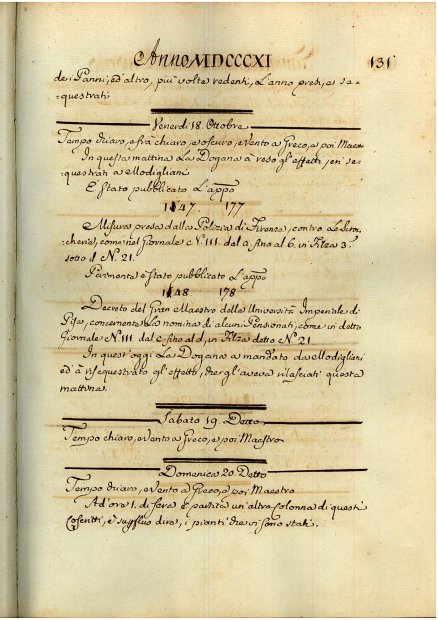 Anno MDCCCXI 131
de i Panni, ed'altro, piu' volte vedenti, L'anno presi, e se=
=questrati
Venerdi 18. Ottobre
Tempo chiaro, e frà chiaro, e oscuro, e Vento a Greco, e poi Maestro
In questa mattina La Dogana à reso gl'effetti, en' se=
=questrati a Modigliani
E stato pubblicato L'appo
147. 177
Misura presa dalla Polizia di Firenze, contro Le
cheria, come nel Giornale N° III. dal a fino al 6. in Filza 3.
sotto d N. 21.
Parimente è stato pubblicato L'appo
148 178
Decreto del Gran Maestro della Università Imperiale di
Pisa, concernente La nomina di alcuni Pensionati, come in detto
Giornale N° III dal c. fino al d, in Filza detto N° 21
In quest'oggi La Dogana a mandato da Modiglieri
ed'à risequestrato gl'effetti, che gl'aveva rilasciati questa
mattina.
Sabato 19. Detto
Tempo chiaro, e Vento a Greco, e poi Maestro
Domenica 20. Detto
Tempo chiaro, e Vento a Greco, e poi Maestro
Ad'ore 1. di sera è partita un'altra Colonna di questi
Coscritti, e superfluo dire, i pianti che vi sono stati.